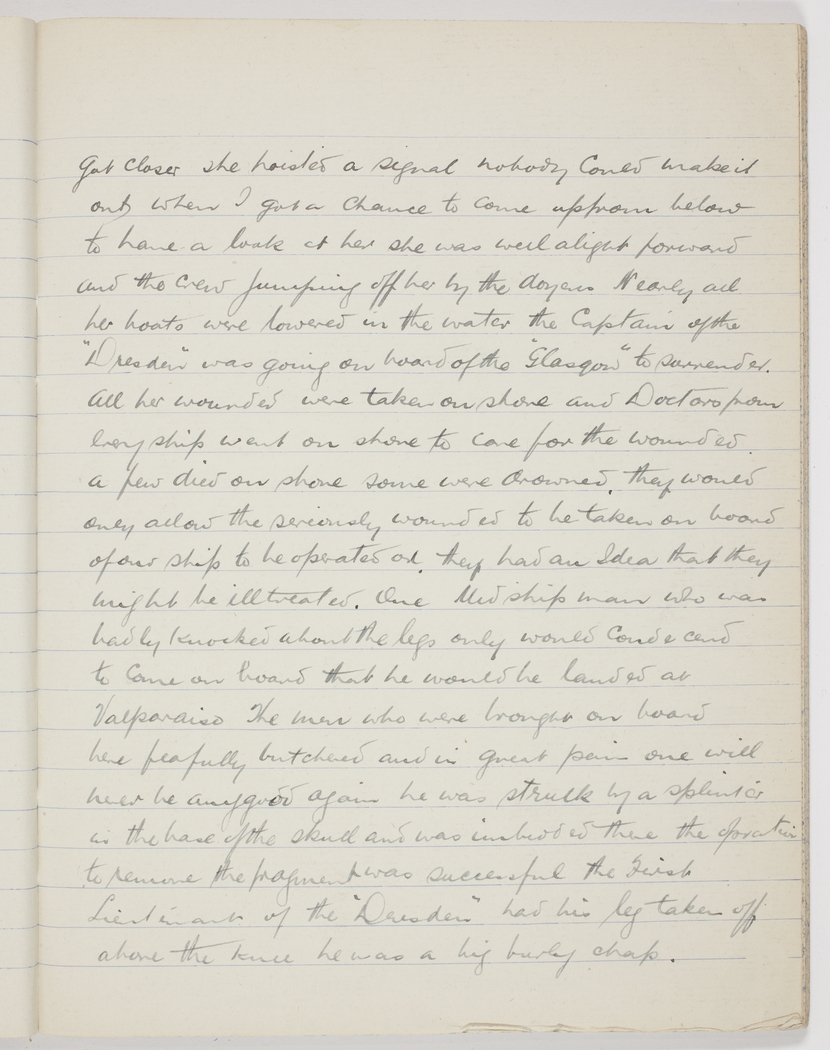 got closer she hoisted a signal nobody Could make it
out when I got a Chance to come up from below
to have a look at her she was well alight forward
and the crew Jumping off her by the dozens Nearly all
her boats were lowered in the water the Captain of the
"Dresden" was going on board of the "Glasgow" to surrender.
All her wounded were taken on shore and Doctors from
Every ship went on shore to care for the wounded.
a few died on shore some were drowned, they would
only allow the seriously wounded to be taken on board
of our ship to be operated on, they had an Idea that they
might be illtreated. One Midshipman who was
badly knocked about the legs only would Condecend
to Come on board that he would be landed at
Valparaiso The men who were brought on board
here feafully butchered and in great pain one will
never be any good again he was struck by a splinter
in the base of the skull and was imbedded there the
to remove the fragment was successful the First
Lieutenant of the "Dresden" had his leg taken off
above the knee he was a big burly chap.